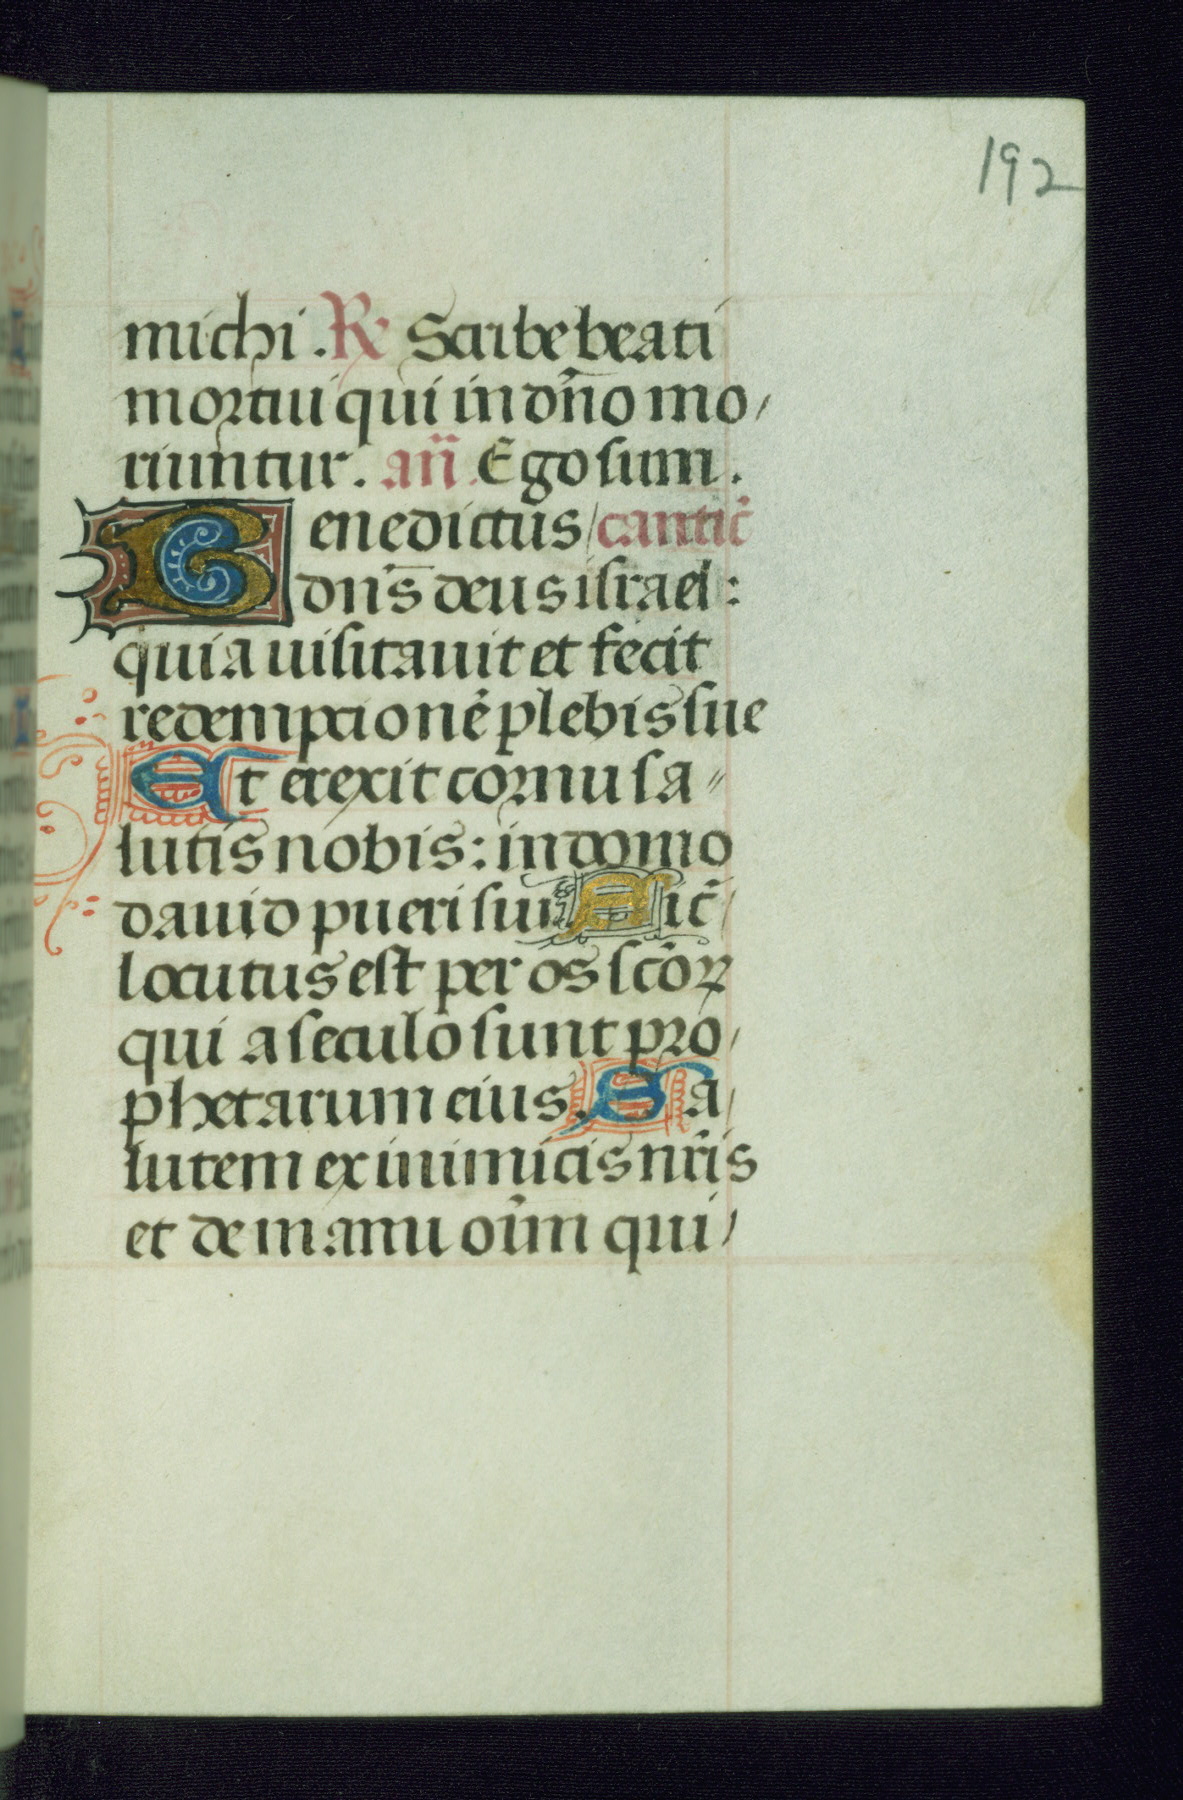 192
michi . R Scribe beati
mortui qui in dn̄o mo/
riuntur . an̄ . Ego sum .
Benedictus / cantic̄
dn̄s deus israel :
quia uisitauit et fecit
redempcionē plebis sue
Et erexit cornu sa //
lutis nobis : in domo
dauid pueri sui Sic̄ /
locutus est per os sc̄oꝝ
qui a seculo sunt pro /
phetarum eius . Sa /
lutem ex inimicis nr̄is
et de manu oīm qui /